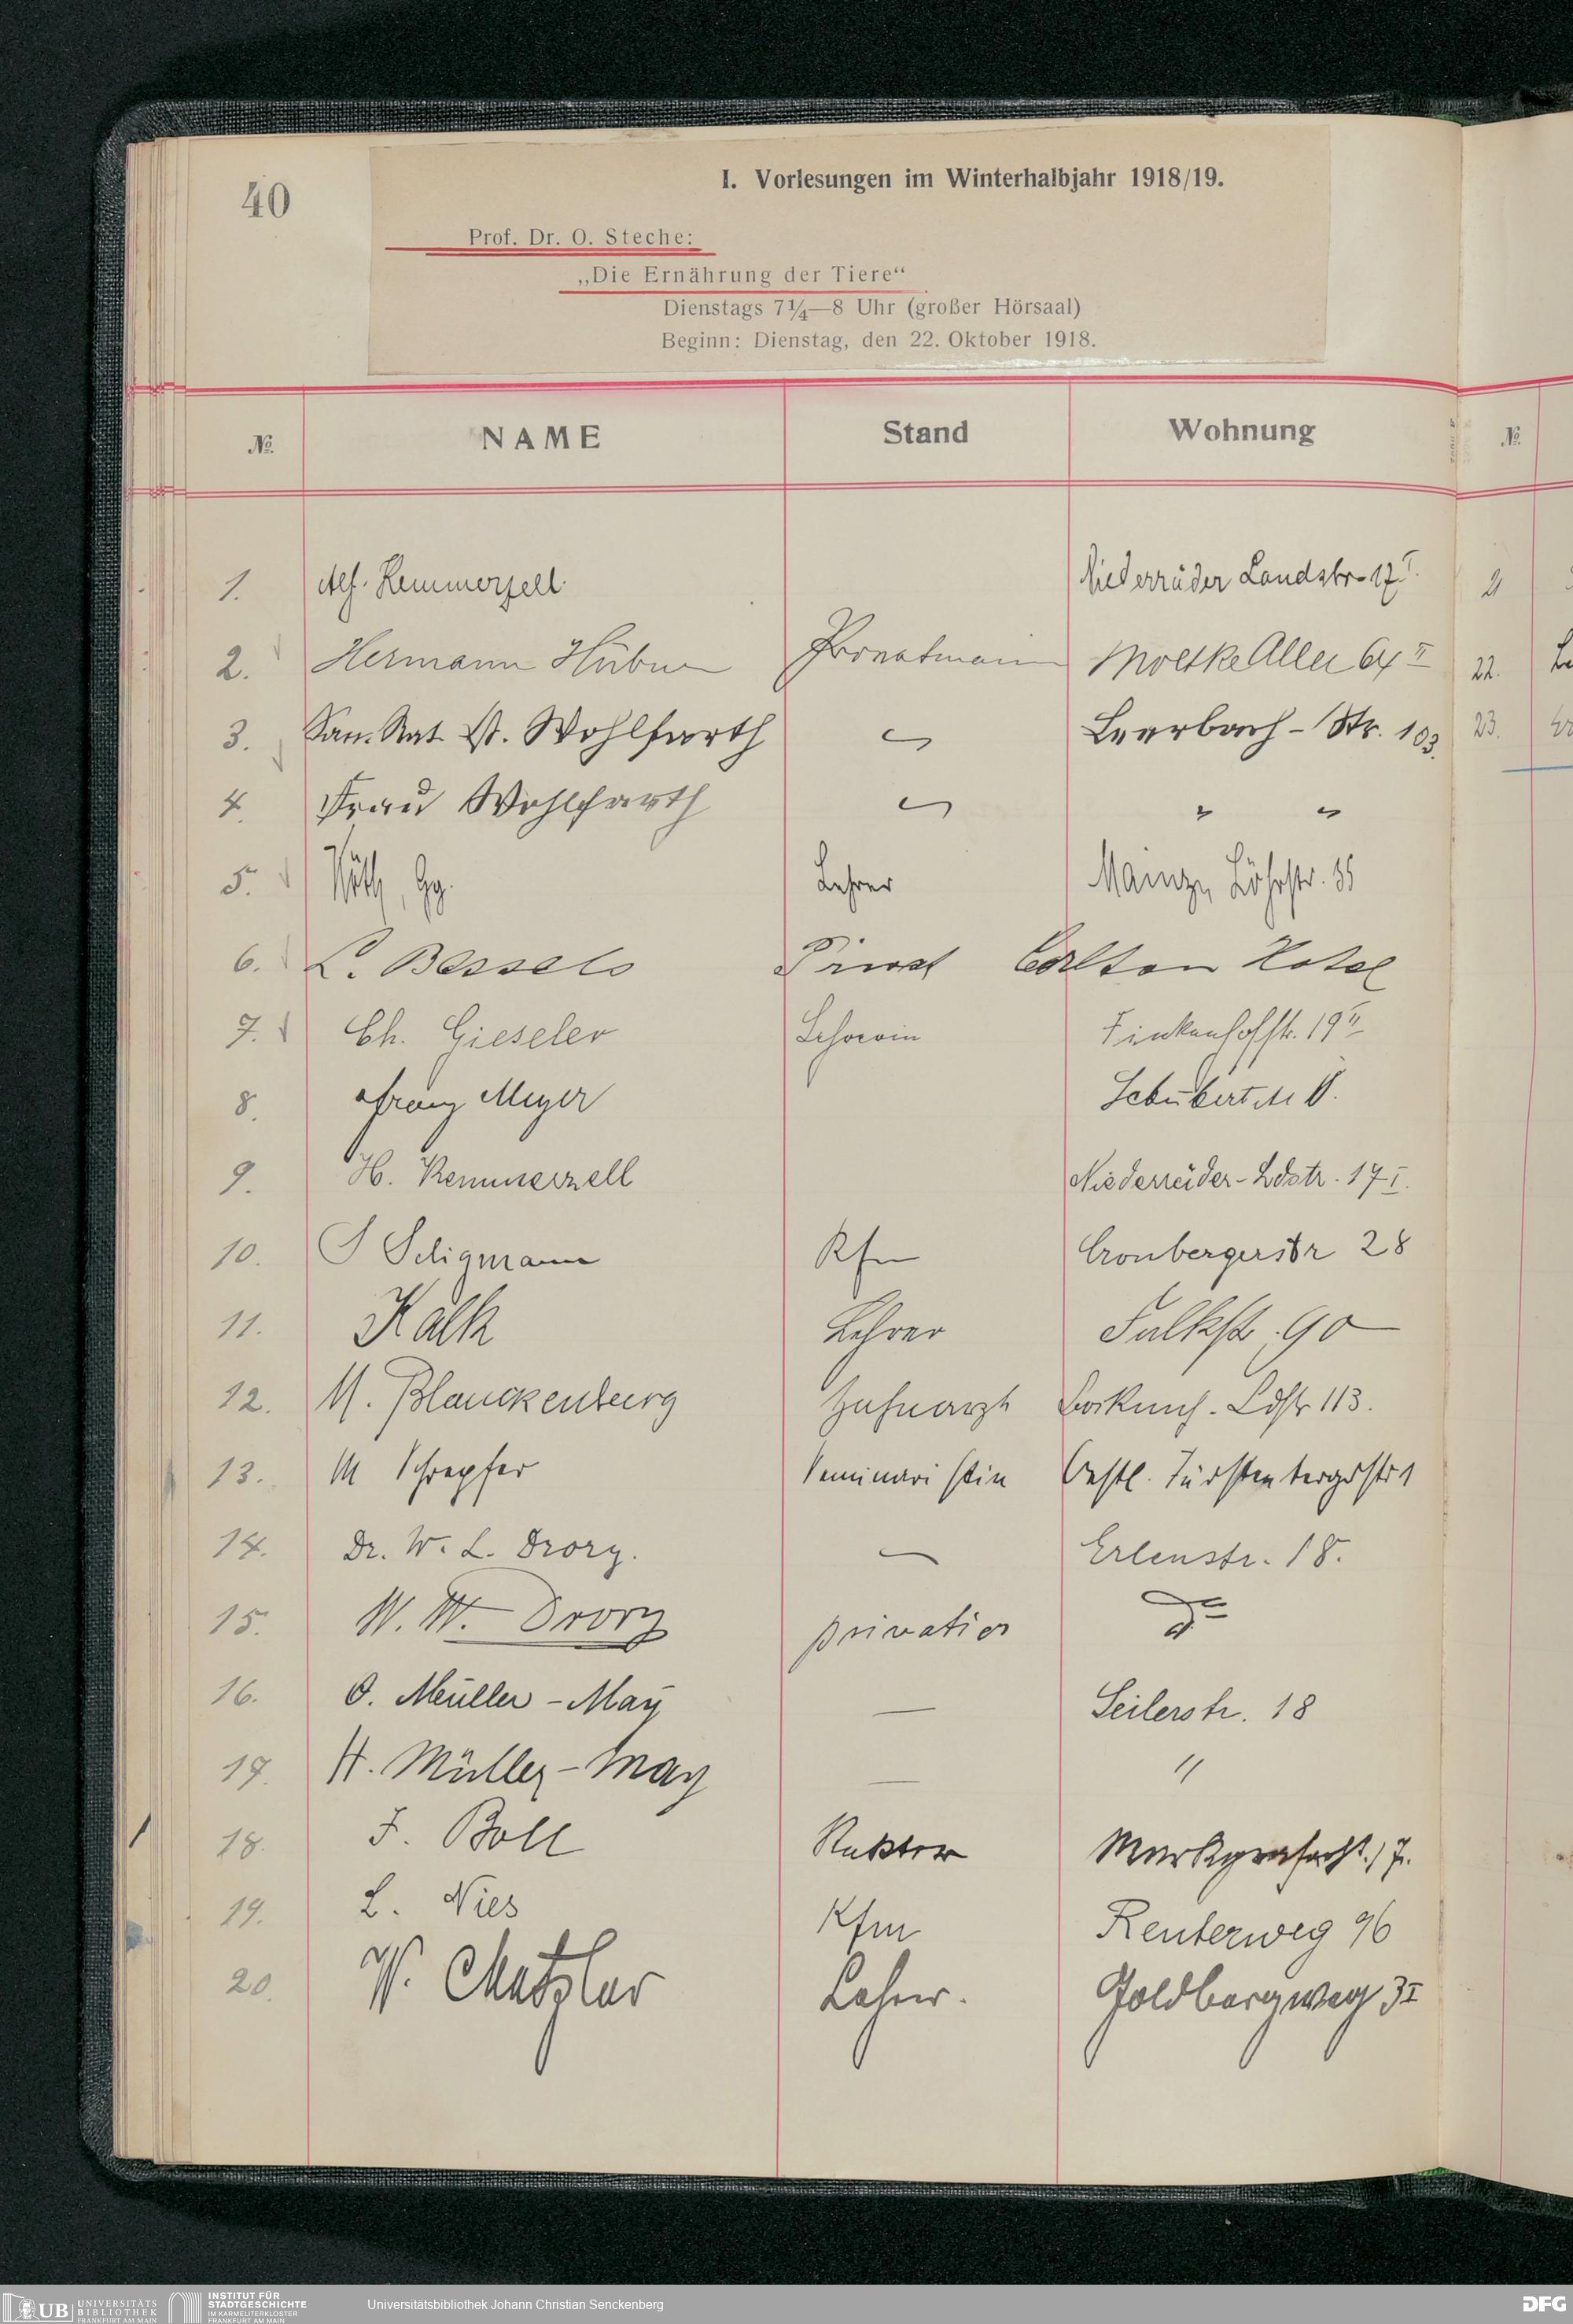 40
I. Vorlesungen im Winterhalbjahr 1918/19.
Prof. Dr. O. Steche:
„Die Ernährung der Tiere“
Dienstags 7¼—8 Uhr (großer Hörsaal)
Beginn: Dienstag, den 22. Oktober 1918.
№ NAME Stand Wohnung №
1. Alf. Remmerzell Niederräder Landstr. 17 I. 21
2. Hermann Hübner Privatmann Moltke Allee 64 II 22.
3. San. Rat Dr. Wohlfarth Leerbach-Str. 103. 23.
4. Frau Wohlfarth " "
5. Gg. Lehrer Mainz,
6. L. Bessels Privat Carlton Hotel
7. Ch. Gieseler Lehrerin Finkenhofstr. 19 II
8. Franz Meyer
9. H. Remmerzell Niederräder-Ldstr. 17 I.
10. J Seligmann Kfm Cronbergerstr 28
11. Kalk Lehrer Falkstr. 90
12. M. Blanckenburg Zahnarzt Bockenh. Ldstr 113.
13. M Schrepfer Seminaristin Oestl. Fürstenbergerstr 1
14. Dr. W. L. Drory. — Erlenstr. 18.
15. W. W. Drory privatier do
16. O. Müller-May — Seilerstr. 18
17. H. Müller-May — "
18. F. Boll Rektor
19. L. Nies Kfm Reuterweg 96
20. W. Metzler Lehrer. Goldbergweg 3 I
UB UNIVERSITÄTS BIBLIOTHEK FRANKFURT AM MAIN
INSTITUT FÜR STADTGESCHICHTE IM KARMELITERKLOSTER FRANKFURT AM MAIN
Universitätsbibliothek Johann Christian Senckenberg
DFG